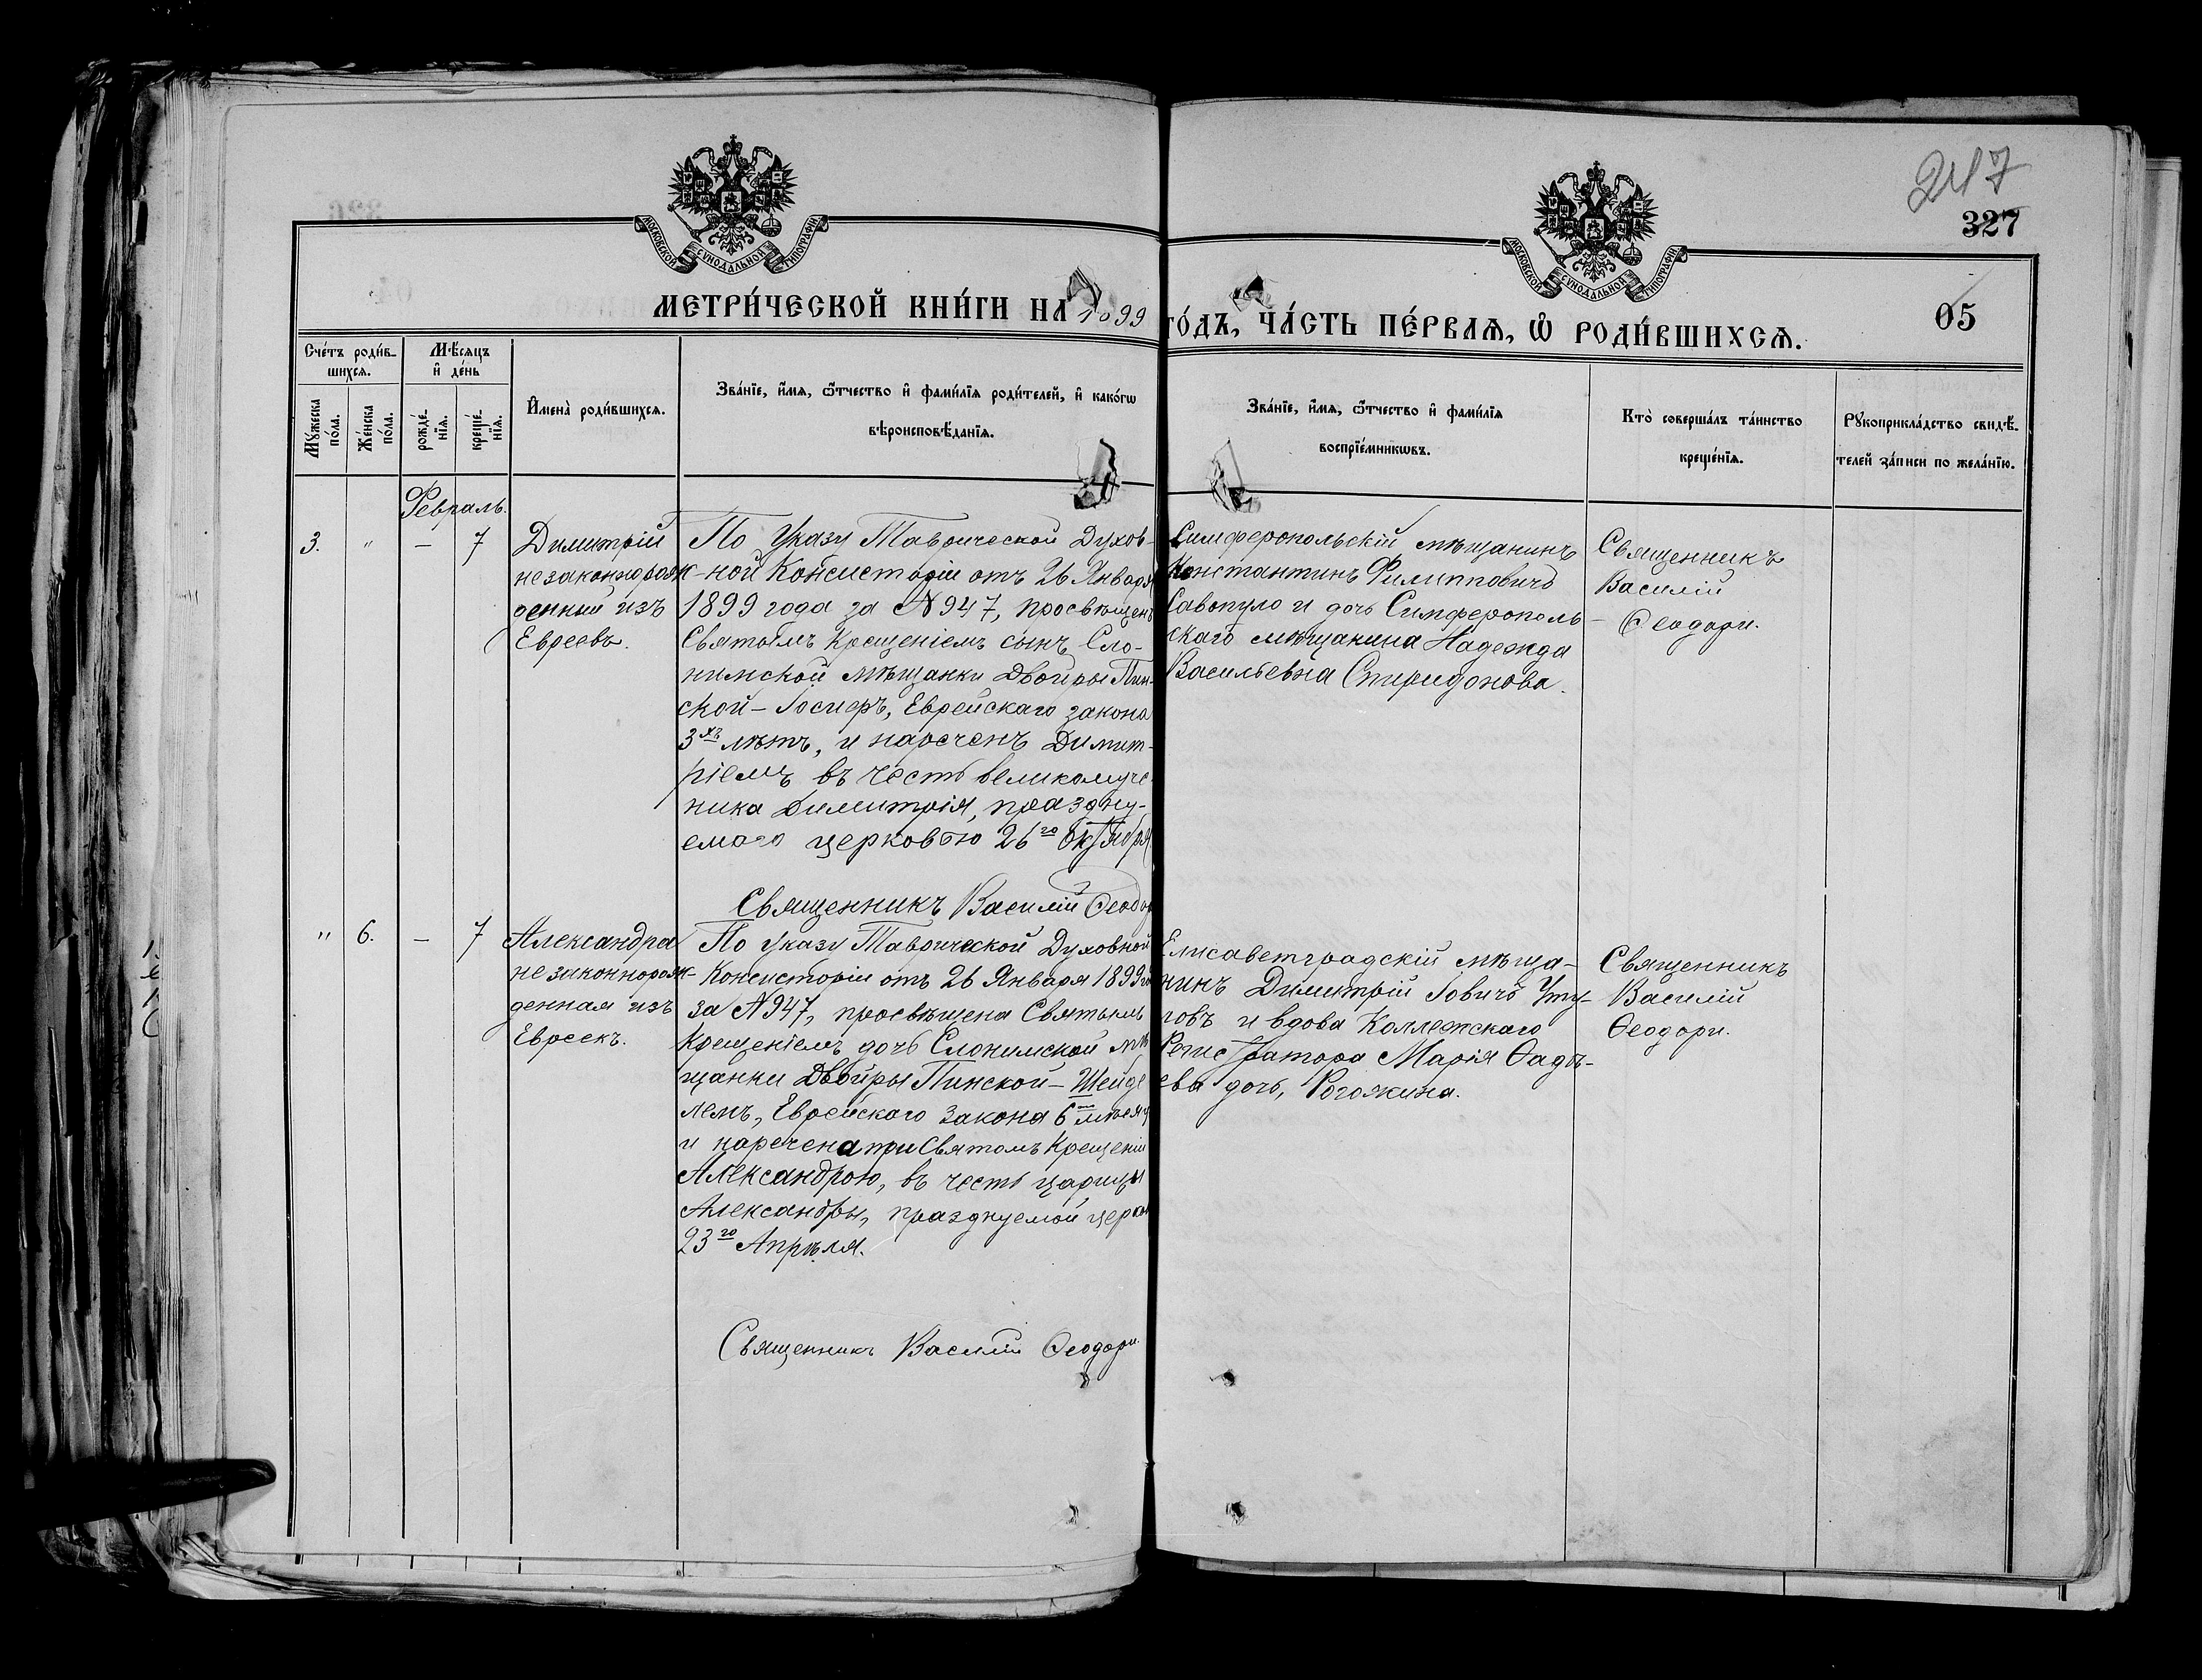 247
327
05
МОСКОВСКОЙ СѴНОДАЛЬНОЙ ТИПОГРАФІИ
МОСКОВСКОЙ СѴНОДАЛЬНОЙ ТИПОГРАФІИ
МЕТРИ́ЧЕСКОЙ КНИ́ГИ НА 1899
ГО́ДЪ, ЧА́СТЬ ПЕ́РВАѦ, Ѡ҆ РОДИ́ВШИХСѦ.
Сче́тъ роди́в-
шихсѧ.
Мѣ́сѧцъ
и҆ де́нь
Мꙋ́жеска
по́ла.
Же́нска
по́ла.
рожде́-
нїѧ.
креще́-
нїѧ.
И҆мена̀ роди́вшихсѧ.
Зва́нїе, и҆́мѧ, ѻ҆́тчество и҆ фами́лїѧ роди́телей, и҆ како́гѡ
вѣроисповѣ́данїѧ.
Зва́нїе, и҆́мѧ, ѻ҆́тчество и҆ фами́лїѧ
воспрїе́мникѡвъ.
Кто̀ соверша́лъ та́инство
креще́нїѧ.
Рꙋкоприкла́дство свидѣ́-
телей за́писи по жела́нїю.
Февраль.
3. " — 7
Димитрій
незаконнорож-
денный изъ
Евреевъ.
По Указу Таврической Духов-
ной Консисторіи отъ 26 Января
1899 года за № 947, просвѣщенъ
Святымъ Крещеніемъ сынъ Сло-
нимской мѣщанки Двойры Пин-
ской – Іосифъ, Еврейскаго закона
3хъ лѣтъ, и нареченъ Димит-
ріемъ въ честь великомуче-
ника Димитрія, праздну-
емаго церковью 26го Октября
Священникъ Василій Ѳеодор
Симферопольскій мѣщанинъ
Константинъ Филипповичъ
Савопуло и дочь Симферополь-
скаго мѣщанина Надежда
Васильевна Спиридонова.
Священникъ
Василій
Ѳеодори.
" 6. — 7
Александра
незаконнорож-
денная изъ
Евреекъ.
По Указу Таврической Духовной
Консисторіи отъ 26 Января 1899 го
за № 947, просвѣщена Святымъ
Крещеніемъ дочь Слонимской мѣ
щанки Двойры Пинской – Шейде
лемъ, Еврейскаго Закона 6ти мѣсяц
и наречена при Святомъ Крещеніи
Александрою, въ честь царицы
Александры, празднуемой церков
23го Апрѣля.
Священникъ Василій Ѳеодори.
Елисаветградскій мѣща-
нинъ Димитрій Іовичъ Уту-
говъ и вдова Коллежскаго
Регистратора Марія Ѳадѣ-
ева дочь, Рогожина.
Священникъ
Василій
Ѳеодори.